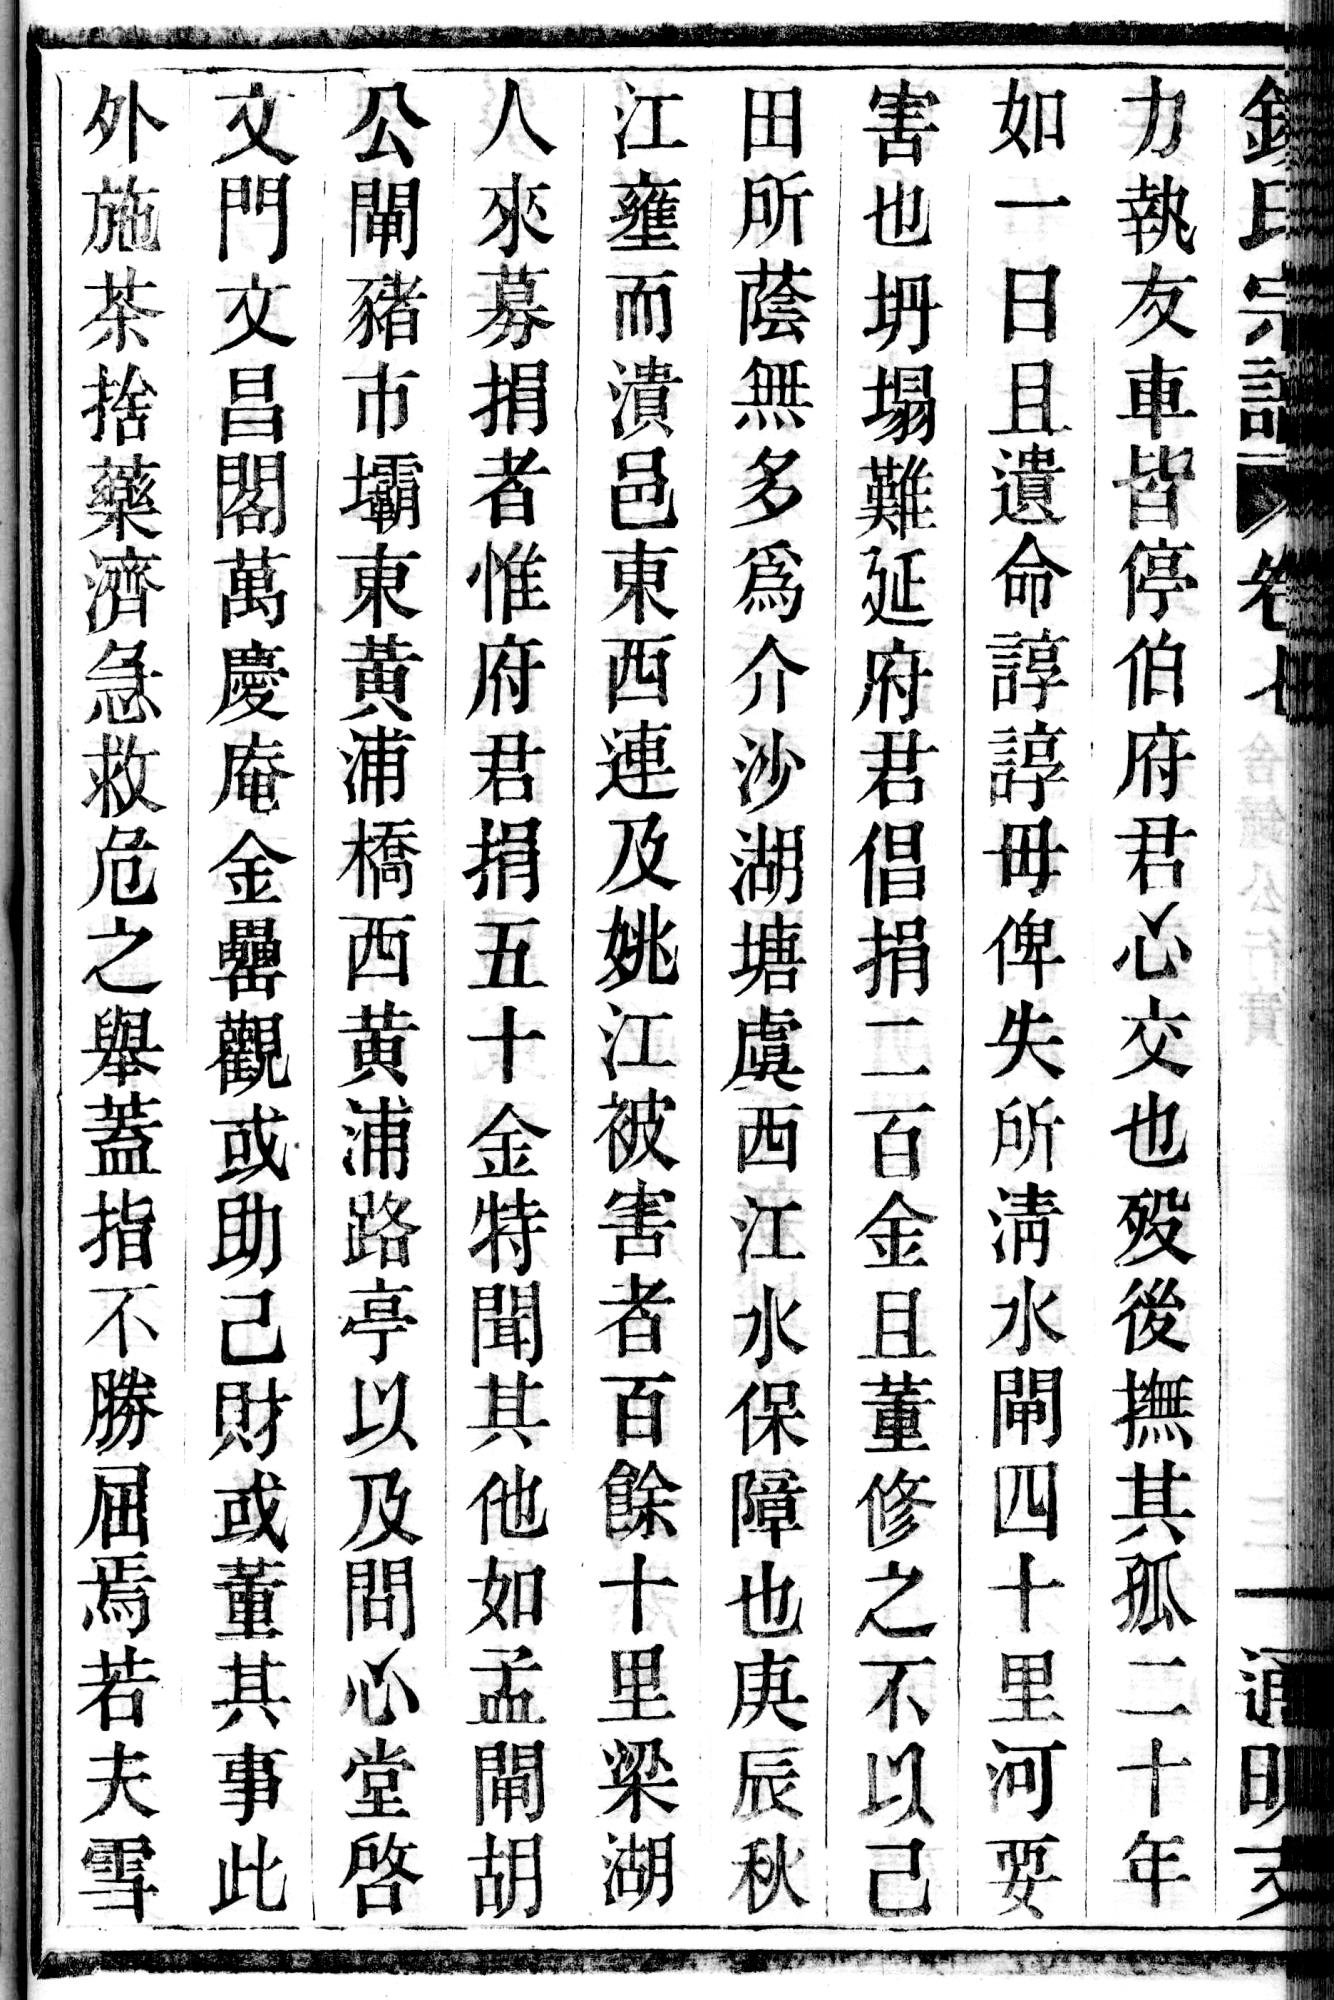 氏宗譜 卷七 通明支
力執友車皆停伯府君心交也歿後撫其孤二十年
如一日且遺命諄諄毋俾失所淸水閘四十里河要
害也坍塌難延府君倡捐二百金且董修之不以己
田所蔭無多爲介沙湖塘虞西江水保障也庚辰秋
江壅而潰邑東西連及姚江被害者百餘十里梁湖
人來募捐者惟府君捐五十金特聞其他如孟閘胡
公閘豬市壩東黃浦橋西黃浦路亭以及問心堂啓
文門文昌閣萬慶庵金罍觀或助己財或董其事此
外施茶捨藥濟急救危之舉蓋指不勝屈焉若夫雪